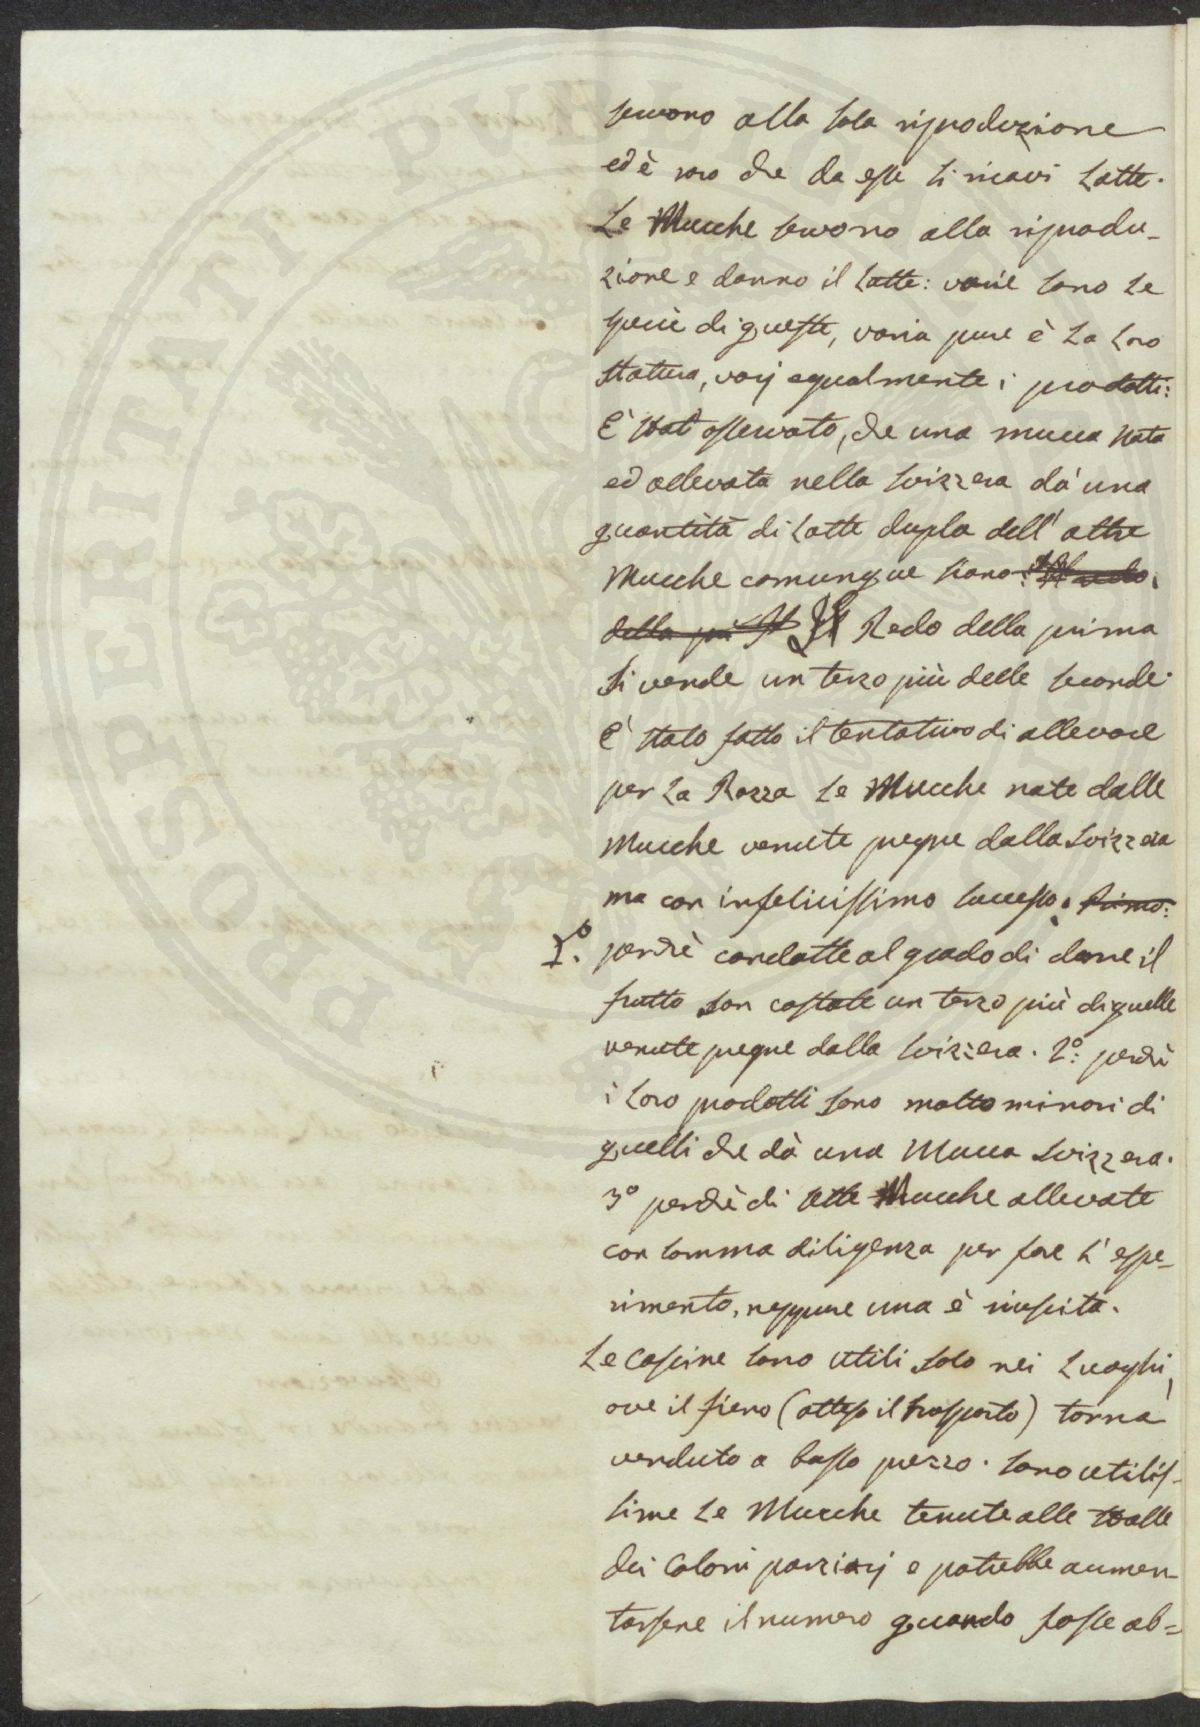 servono alla sola riproduzione
ed è raro che da esse si ricavi Latte.
Le Mucche servono alla riprodu-
zione e danno il Latte: varie sono Le
specie di queste, varia pure è La Loro
Statura, varj egualmente i prodotti:
E' stat' osservato, che una mucca nata
ed allevata nella Svizzera dà una
quantità di Latte dupla dell' altre
Mucche comunque siano:
della più Il Il Redo della prima
si vende un terzo più delle seconde.
E' stato fatto il tentativo di allevare
per La Razza Le Mucche nate dalle
Mucche venute pregne dalla Svizzera
ma con infelicissimo successo. Primo:
1.° perchè condotte al grado di darne il
frutto son costate un terzo più di quelle
venute pregne dalla Svizzera. 2.° perchè
i Loro prodotti sono molto minori di
quelli che dà una Mucca Svizzera.
3° perchè di sette Mucche allevate
con somma diligenza per fare L' espe-
rimento, neppure una è riuscita.
Le Cascine sono utili solo nei Luoghi,
ove il fieno (atteso il trasporto) torna
venduto a basso prezzo. Sono utilis-
sime Le Mucche tenute alle stalle
dei Coloni parziarj e potrebbe aumen-
tarsene il numero quando fosse ab=
PROSPERITATI PVBLICAE